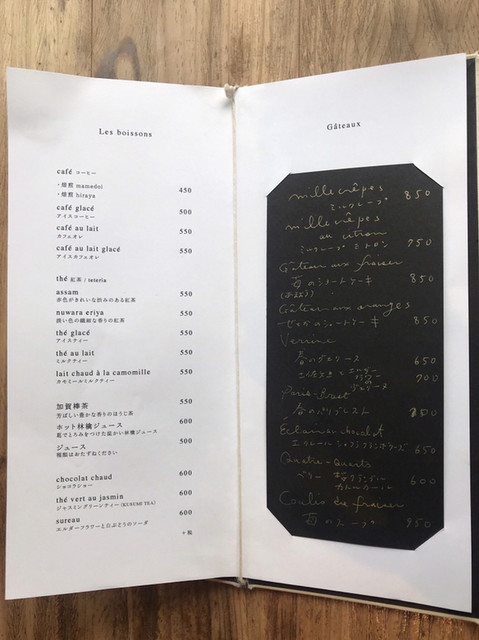 Les boissons
café コーヒー
・焙煎 mamedoi
・焙煎 hiraya 450
café glacé 500
アイスコーヒー
café au lait 550
カフェオレ
café au lait glacé 550
アイスカフェオレ
thé 紅茶 / teteria
assam 550
赤色がきれいな渋みのある紅茶
nuwara eriya 550
淡い色の繊細な香りの紅茶
thé glacé 550
アイスティー
thé au lait 550
ミルクティー
lait chaud à la camomille 550
カモミールミルクティー
加賀棒茶 550
芳ばしい豊かな香りのほうじ茶
ホット林檎ジュース 600
葛でとろみをつけた温かい林檎ジュース
ジュース 500
種類はおたずねください
chocolat chaud 600
ショコラショー
thé vert au jasmin 600
ジャスミングリーンティー (KUSUMI TEA)
sureau 600
エルダーフラワーと白ぶどうのソーダ
+税
Gâteaux
mille crêpes 850
ミルクレープ
mille crêpes
au citron
ミルクレープ シトロン 750
Gâteau aux fraises
苺のショートケーキ 850
Gâteau aux oranges
のショートケーキ 850
Verrine
春のヴェリーヌ 650
700
Paris-Brest
春のパリブレスト
Éclair au chocolat
650
Quatre-Quarts
ベリー 600
Coulis de fraises
苺のスープ 950